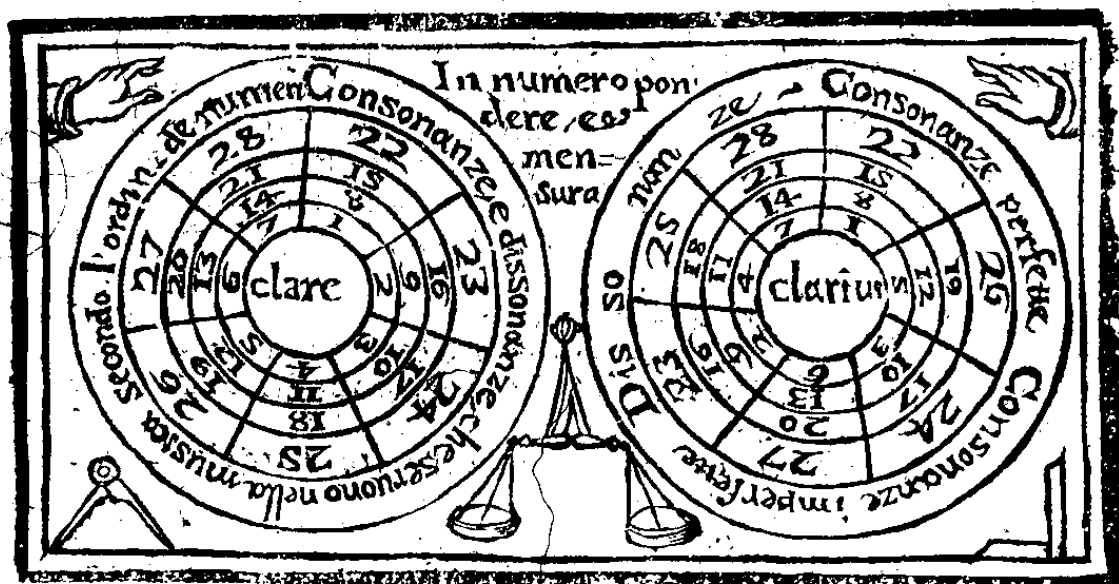 In numero pon:
dere, et
men=
sura
Consonanze, e dissonanze, che seruono nella musica secondo l'ordin. de numeri
22 23 24 25 26 27 28
15 16 17 18 19 20 21
8 9 10 11 12 13 14
1 2 3 4 5 6 7
clare
Consonanze perfette Consonanze imperfette Dis so nan ze
22 26 24 27 23 25 28
15 19 17 20 16 18 21
8 12 10 13 9 11 14
1 5 3 6 2 4 7
clarius